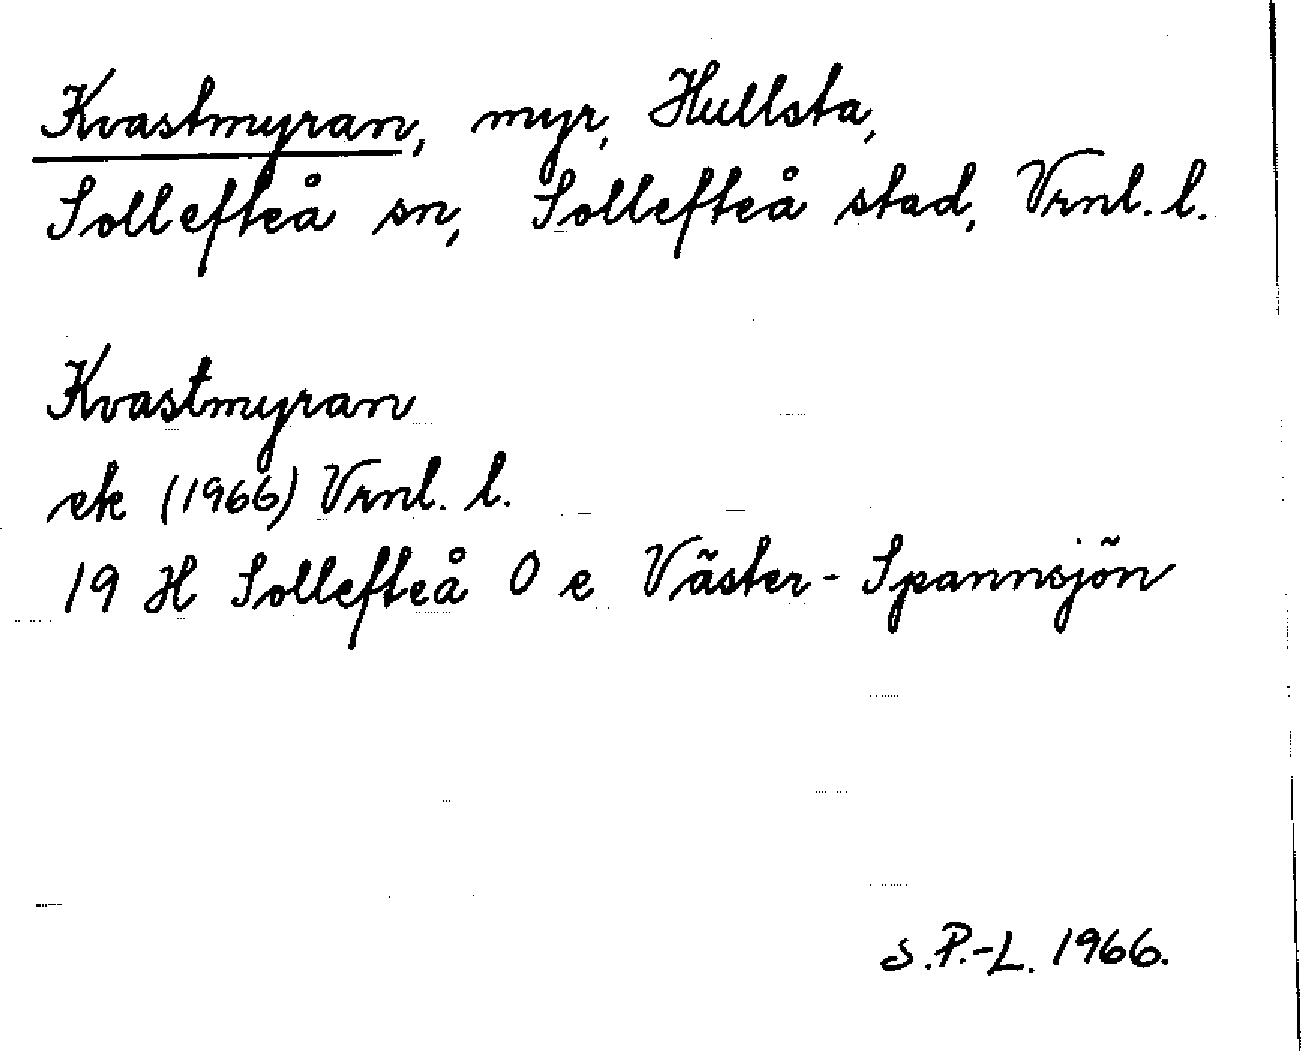 Kvastmyran, myr, Hullsta,
Sollefteå sn, Sollefteå stad, Vrnl. l.
Kvastmyran
ek (1966) Vrnl. l.
19 H Sollefteå O e Väster-Spannsjön
S.P.-L. 1966.